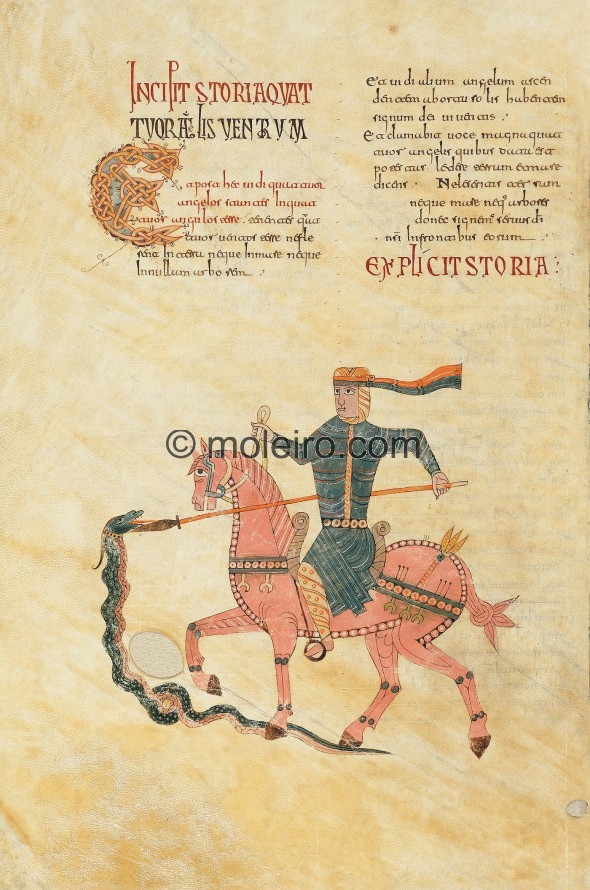 INCIPIT STORIA QVAT
TVOR ÆLIS VENTRVM
Et post hec uidi quatuor
angelos stantes In quat
tuor angulos terre. tenentes q̄a
tuor uentos terre ne fle
rent In terra neque In mare neque
In nullum arborem
Et uidi alium angelum ascen
dentem ab ortu solis habentem
signum dei uiuentis.
Et clamabit uoce magna quat
tuor angelis quibus data est
potestas ledere terram et mare
dicens. Neleseritis terram
neque mare neq; arbores
donec signem seruis di
nsi Infrontibus eorum
EXPLICIT STORIA:
© moleiro.com